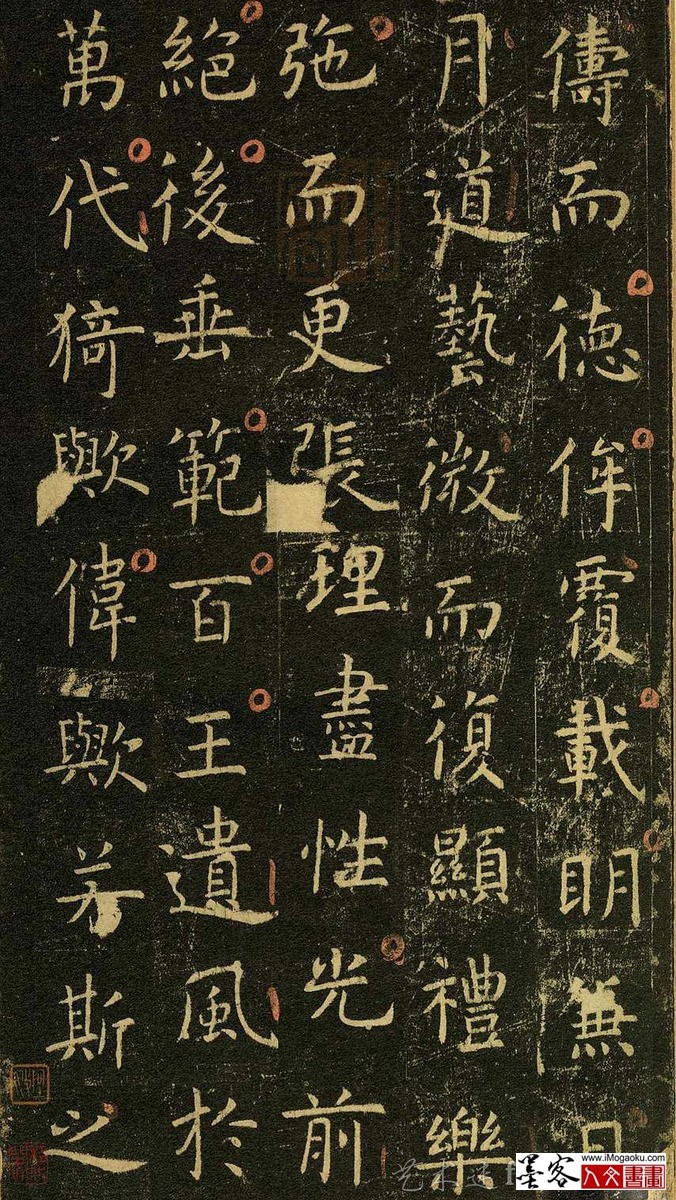 儔而徳侔覆載明兼日
月道藝微而復顯禮樂
弛而更張理盡性光前
絶後垂範百王遺風於
萬代猗歟偉歟若斯之
墨客 www.iMogaoku.com
人文書畫